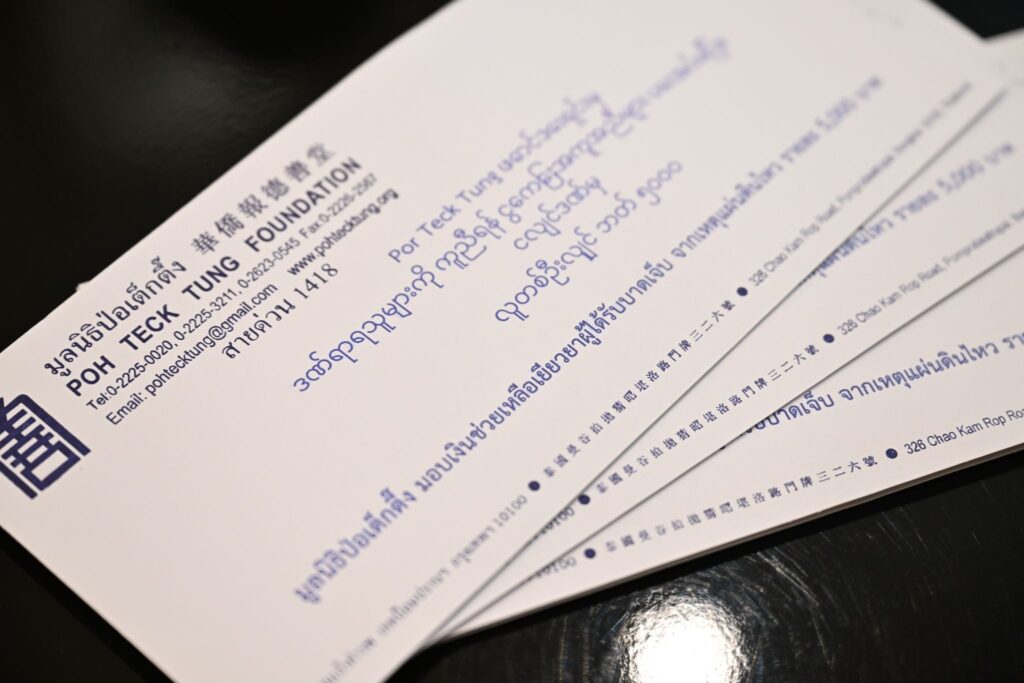 มูลนิธิป่อเต็กตึ๊ง 華僑報德善堂
POH TECK TUNG FOUNDATION
Tel:0-2225-0020 0-2225-3211, 0-2623-0545 Fax:0-2226-2567
Email: pohtecktung@gmail.com www.pohtecktung.org
สายด่วน 1418
善
Por Teck Tung ဖောင်ဒေးရှင်းမှ
ဒဏ်ရာရသူများကို ကူညီရန် ငွေကြေး
ငလျင်ဒဏ်မှ
လူတစ်ဦးလျှင် ဘတ် ၅၀၀၀
มูลนิธิป่อเต็กตึ๊ง มอบเงินช่วยเหลือเยียวยาผู้ได้รับบาดเจ็บ จากเหตุแผ่นดินไหว รายละ 5,000 บาท
กรุงเทพฯ 10100 ● 泰國曼谷拍拋猜昭堪洛路門牌三二六號 ● 326 Chao Kam Rop Road,
แผ่นดินไหว รายละ 5,000 บาท
10100 ● 泰國曼谷拍拋猜昭堪洛路門牌三二六號 ● 326 Chao Kam Rop Road,
บาดเจ็บ จากเหตุแผ่นดินไหว
10100 ● 泰國曼谷拍拋猜昭堪洛路門牌三二六號 ● 326 Chao Kam Rop